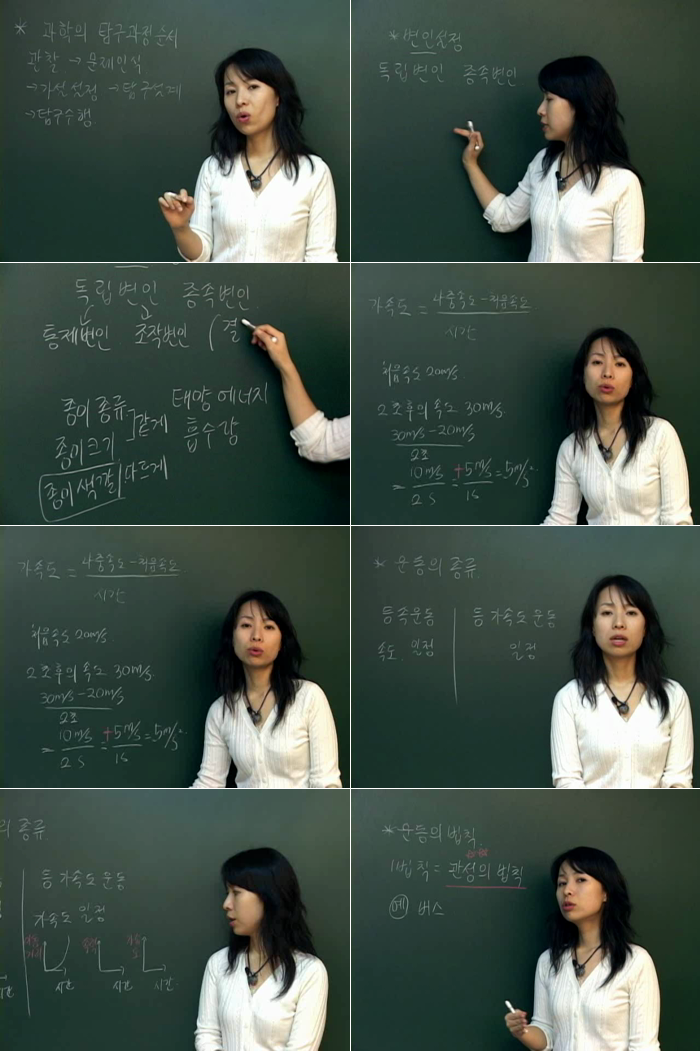 * 과학의 탐구과정순서
관찰 → 문제인식
→가설설정 → 탐구설계
→탐구수행
* 변인설정
독립변인 종속변인
독립변인 종속변인
통제변인 조작변인 (결
종이 종류 태양 에너지
같게 흡수량
종이크기
종이 색깔 다르게
가속도 = 나중속도-처음속도
시간
처음속도 20m/s
2초후의 속도 30m/s.
30m/s-20m/s
2초
= 10m/s = +5m/s = 5m/s²
2s 1s
가속도 = 나중속도-처음속도
시간
처음속도 20m/s
2초후의 속도 30m/s.
30m/s-20m/s
2초
= 10m/s = +5m/s = 5m/s²
2s 1s
* 운동의 종류
등속운동 등 가속도 운동
속도 일정 일정
의 종류
등 가속도 운동
가속도 일정
시간 시간 시간
* 운동의 법칙
1법칙 = 관성의 법칙
예 버스